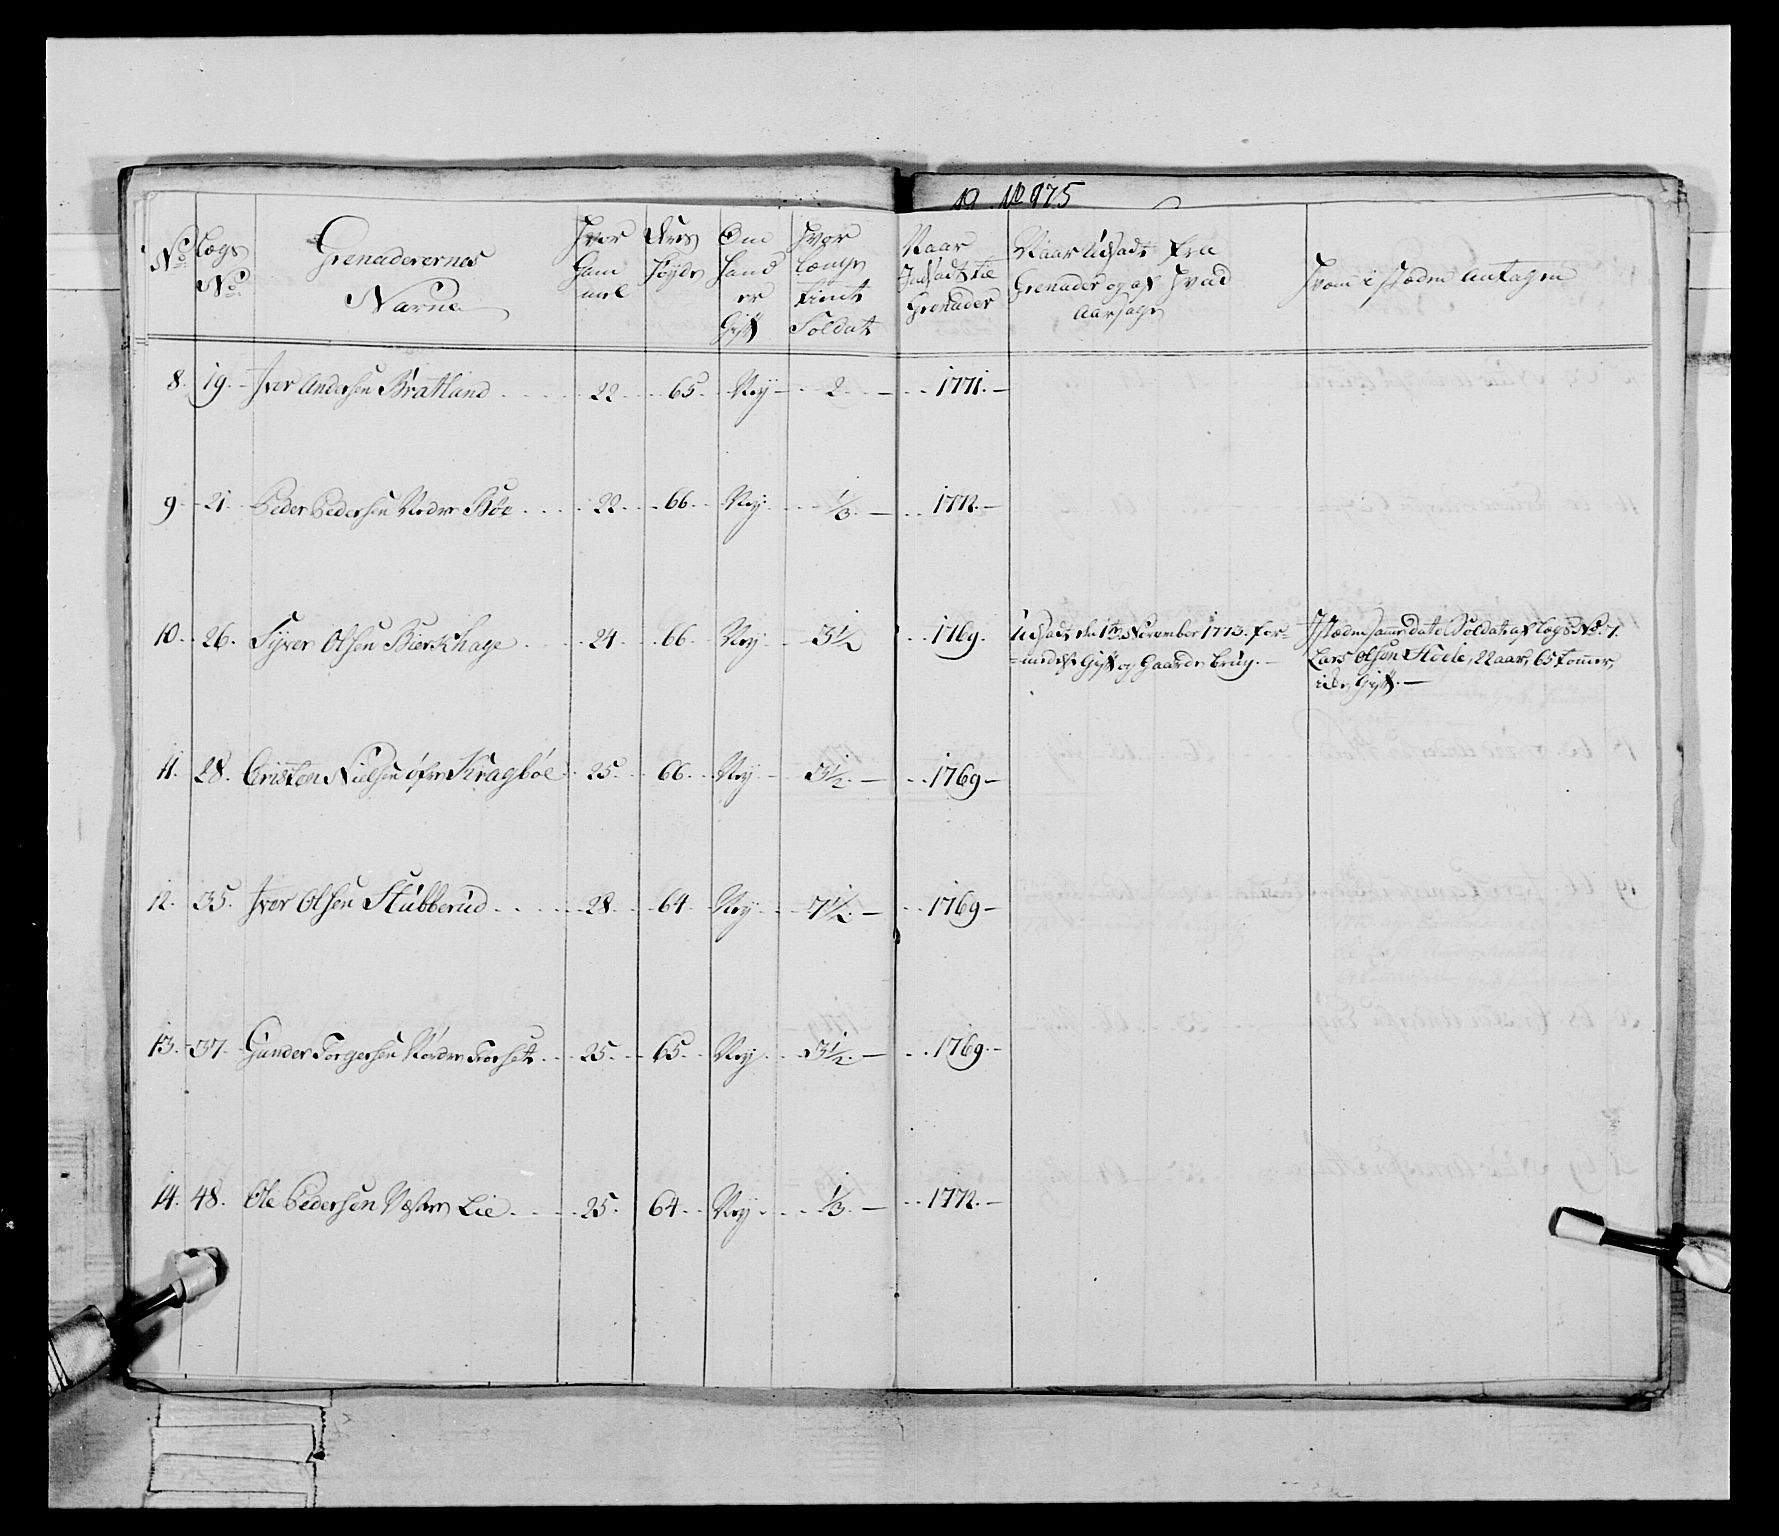 19. No 975
No Lægs No Grenaderernes Nafne Hvor Gammel Deres Høyde Om hand er Gift Hvor Længe tient Soldat Naar Indsadt til Grenader Naar Udsadt fra Grenader og af Hvad Aarsage Hvem i stæden Antagen
8. 19. Iver Andersen Bratland 22 65. Ney 2. 1771.
9 21. Peder Pedersen Nedre Bøe 22 66 Ney 1/3. 1772.
10. 26. Syver Olsen Bierkhage 24 66 Ney 3 1/2 1769. Udsadt den 1te November 1773. for-
=medelst Gift og Gaarde brug.
I stæden samme dato Soldat af Lægs No. 7.
Lars Olsen Støele, 22 aar, 65 tommer,
icke Gift.
11. 28. Cristen Nielsen øfre Kragbøe 25. 66 Ney 3 1/2. 1769
12. 35. Iver Olsen Stubberud 28. 64 Ney 7 1/2. 1769
13. 37. Gunder Torgersen Nordre Forset 25. 65. Ney 3 1/2. 1769.
14. 48. Ole Pedersen Væstre Lie 25. 64 Ney 1/3. 1772.